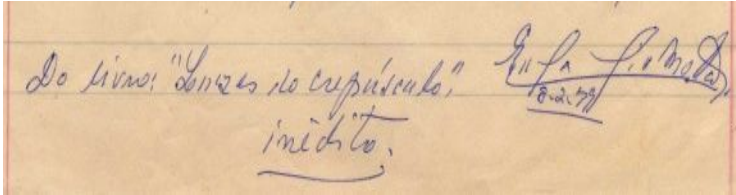 Do livro: "Luzes do crepúsculo",
8-2-79
inédito.